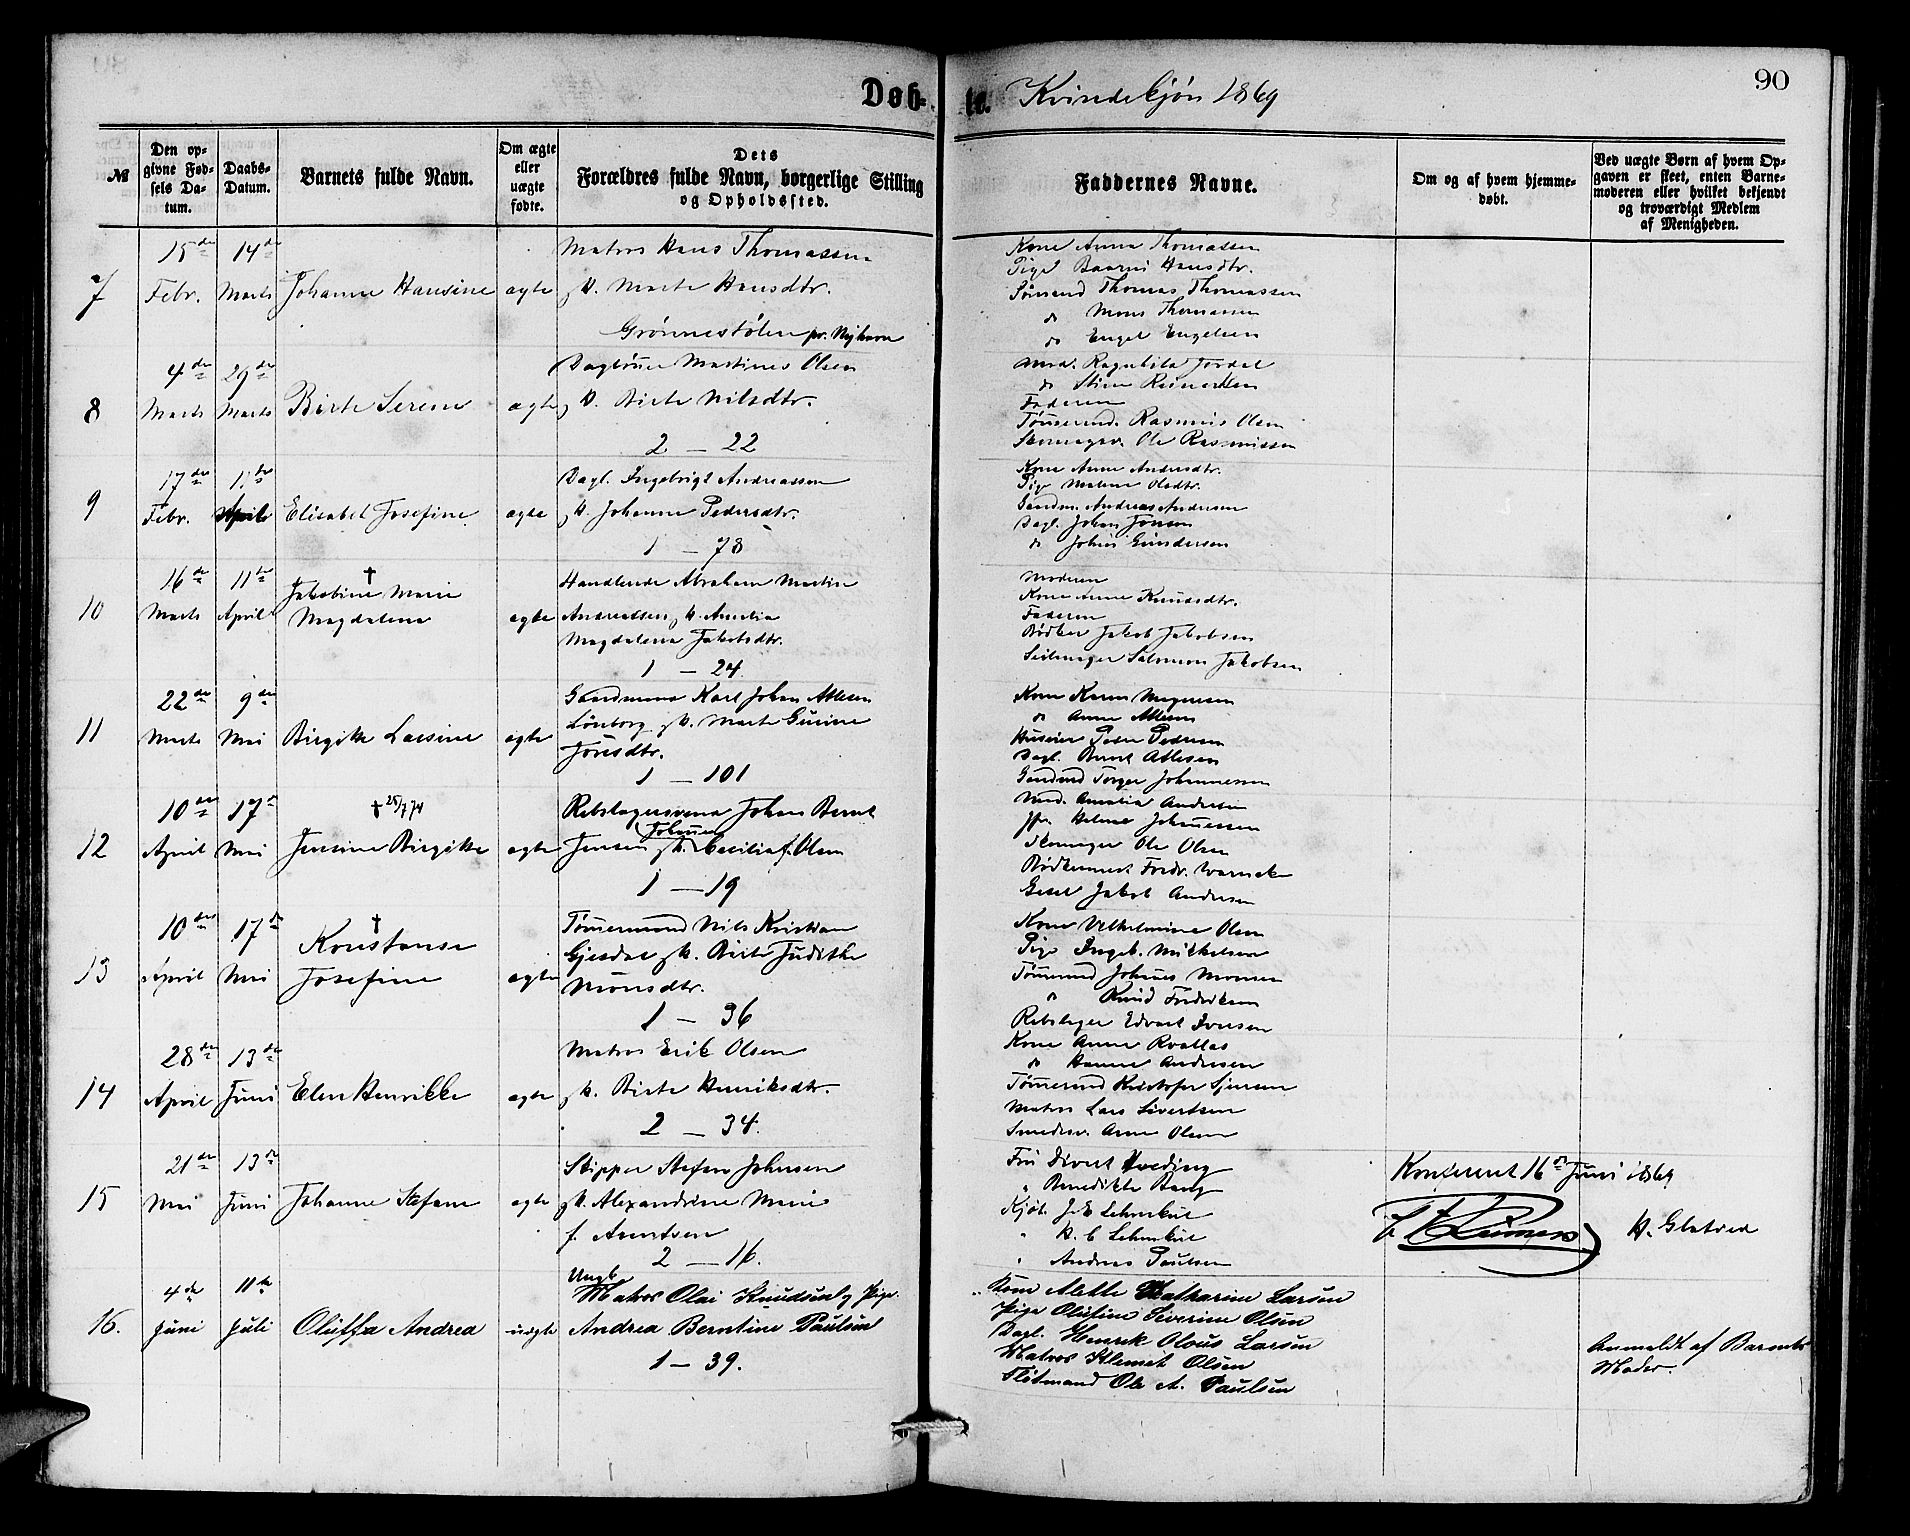 90
Døb- te. Kvindekjøn 1869
№
Den op-
givne Fød-
sels Da-
tum.
Daabs-
Datum.
Barnets fulde Navn.
Om ægte
eller
uægte
fødte.
Dets
Forældres fulde Navn, borgerlige Stilling
og Opholdssted.
Faddernes Navne.
Om og af hvem hjemme-
døbt.
Ved uægte Børn af hvem Op-
gaven er skeet, enten Barne-
moderen eller hvilket bekjendt
og troværdigt Medlem
af Menigheden.
7
15de
Febr.
14de
Marts
Johanne Hansine
ægte
Matros Hans Thomassen
H. Marte Hansdtr.
Grønnestølen pr. Nyhavn
Kone Anna Thomassen
Pige Hansdtr.
Sømand Thomas Thomassen
do Mons Thomassen
do Engel Engelsen
8
4de
Marts
29de
Marts
Birte Serine
ægte
Martines Olsen
H. Birte Nilsdtr.
2 — 22
Mad. Ragnhild
do Stine
Faderen
Tømmermd. Rasmus Olsen
Ole Rasmussen
9
17de
Febr.
11te
April
Elisabet Josefine
ægte
Dagl. Ingebrigt Andreassen
H. Johanne Pedersdtr.
1 — 78
Kone Anne Andersdtr.
Pige Malene Olsdtr.
Gaardm. Andreas Andersen
Dagl. Johan Jonsen
do Johan Gundersen
10
16de
Marts
11te
April
†
Jakobine Marie
Magdalena
ægte
Handlende Abraham Martin
Andreassen, H. Amalia
Magdalena Jakobsdtr.
1 — 24.
Moderen
Kone Anne Knudsdtr.
Faderen
Bødker Jakob Jakobsen
Seilmager Salomon Jakobsen
11
22de
Marts
9de
Mai
Birgitte Larsine
ægte
Gaardmand Karl Johan Atlesen
Lønborg, H. Marte Gurine
Jonsdtr.
1 — 101
Kone Karen Magnesen
do Anne Atlesen
Peder Pedersen
Dagl. Bernt Atlesen
Gaardmd Torger Johannesen
12
10de
April
17de
Mai
† 28/7 74
Jensine Birgitte
ægte
Rebslagersvend Johan Bernt
Jensen, H. Cecilia f. Olsen
1 — 19
Mad. Amalia Andersen
Jfr. Helene Johnnessen
Skomager Ole Olsen
Bødkermest Fredr. Warncke
Gesel Jakob Andersen
13
10de
April
17de
Mai
†
Konstanse
Josefine
ægte
Tømmermand Nils Kristian
Gjesdal, H. Birte Judithe
Monsdtr.
1 — 36
Kone Vilhelmine Olsen
Pige Ingeb. Mickelsen
Tømmermd Johannes Monsen
" Knud Fredriksen
Rebslager Edvart Iversen
14
28de
April
13de
Juni
Elen Henrikke
ægte
Matros Erik Olsen
H. Birte Henriksdtr.
2 — 34.
Kone Anne
do Hanne Andersen
Tømmermd Kristofer
Matros Lars Sivertsen
Smedesv. Arne Olsen
15
21de
Mai
13de
Juni
Johanne Stefane
ægte
Skipper Stefan Johnsen
H. Alexandrine Marie
f. Arentsen
2 — 16.
Fru Sivert Hveding
" Benedikte Bang
Kjøb. J. E. Lehmkul
" K. C Lehmkul
" Andreas Paulsen
Konfereret 16de Juni 1869
16.
4de
Juni
11te
Juli
Oluffa Andrea
uægte
Ungk.
Matros Olai Knudsen, Pige
Andrea Berntine Paulsen
1 — 39.
Kone Alette Katharine Larsen
Pige Olufine Severine Olsen
Dagl. Henrik Olaus Larsen
Matros Klemet Olsen
Flotmand Ole A. Paulsen
Anmeldt af Barnets
Moder.